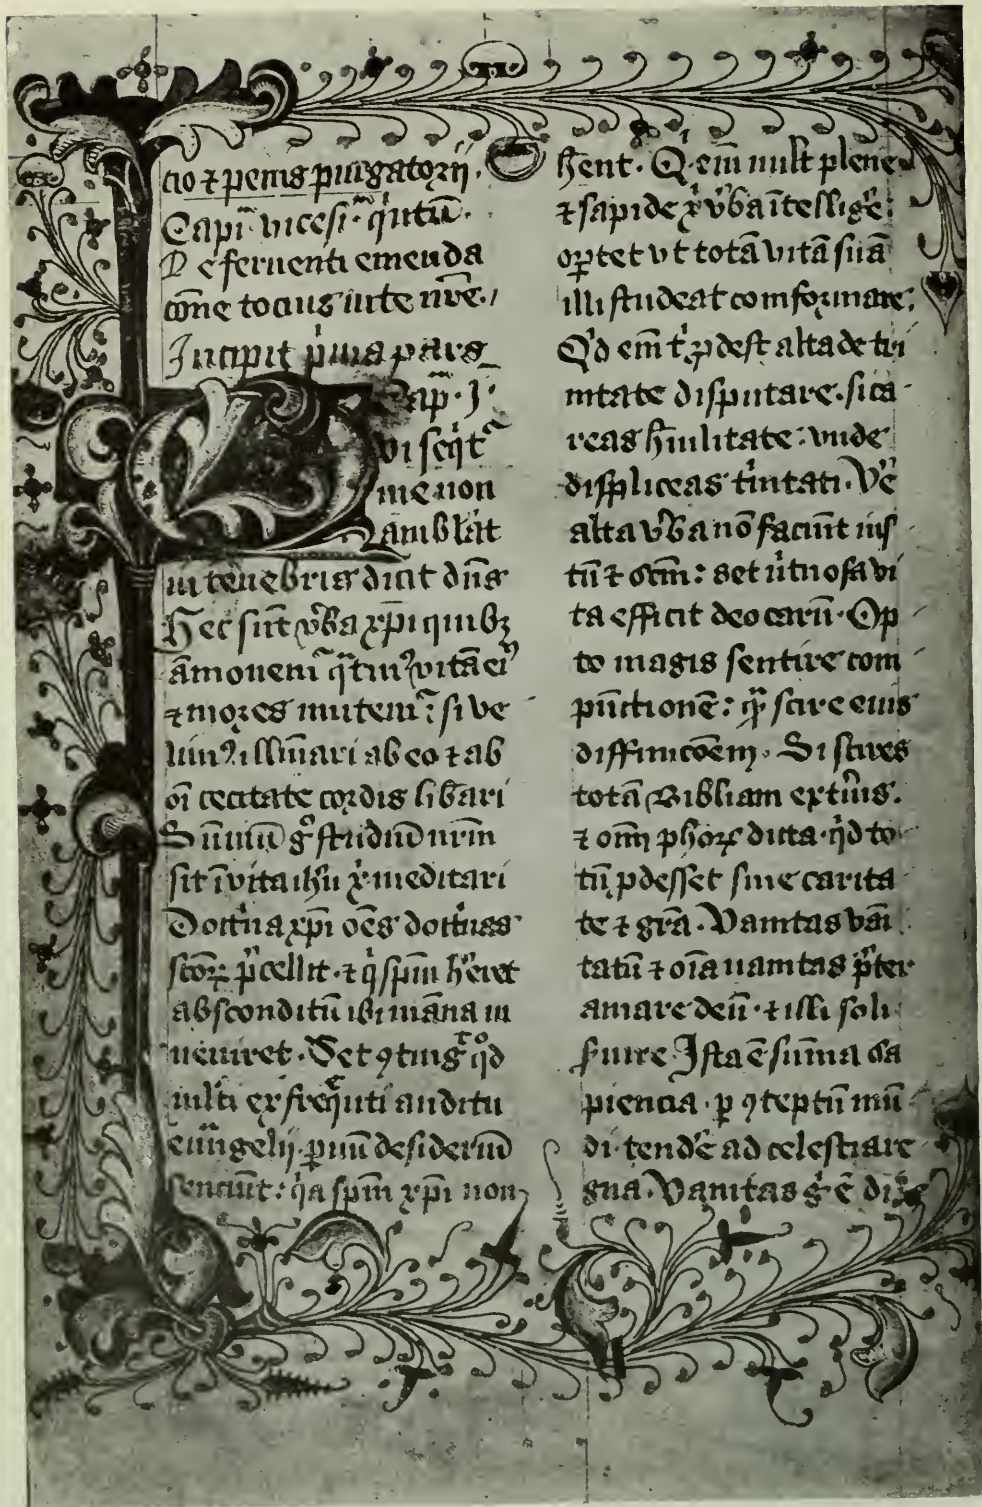 cio ⁊ penis purgatorij.
Capᵐ vicesiᵐ qͥntū.
De feruenti emenda
cōne tocius uite nr̄e.
Incipit pͥma pars
Capᵐ. I.
Qui seqͥtᷣ
me non
ambulat
in tenebris dicit dn̄s
Hec sūt v̓ba xp̄i quibꝫ
āmonemᷣ qͣtinꝰ vitā eiꝰ
⁊ mores mutemᷣ: si ve
limꝰ illūinari ab eo ⁊ ab
oī cecitate cordis lib̓ari
Sūmū gͦ studiū nr̄m
sit ī vita ihū xͥ meditari
Doctͥna xp̄i oēs doctͥnas
sc̄oꝝ p̓cellit. ⁊ qͥ spm̄ hēret
absconditū ibi māna in
ueniret. Set ꝯtingͭ qͦd
multi ex freqͣnti auditu
euāngelij. ꝑuū desideriū
senciūt: qͥa spm̄ xp̄i non
hēnt. Qͥ em̄ uult plene
⁊ sapide xͥ v̓ba ītellig̓e:
oꝑtet vt totā vitā suā
illi studeat comformare:
Qͥd em̄ tͥ ꝓdest alta de tri
nitate disputare. si ca
reas hūilitate: vnde
displiceas tͥnitati. Ve̓
alta v̓ba nō faciūt ius
tū ⁊ sc̄m: set v̓tuosa vi
ta efficit deo carū. Op
to magis sentire com
pūctionē: qͣ̄ scire eius
diffinicōem. Si scires
totā Bibliam exteri̓us.
⁊ om̄ pħoꝝ dicta. qͥd to
tū ꝓdesset sine carita
te ⁊ gr̄a. Vanitas vāi
tatū ⁊ oīa uanitas p̓ter
amare deū. ⁊ illi soli
s̓uire Ista ē sūma sa
piencia. ꝑ ꝯteptū mū
di. tend̓e ad celestia re
gna. Vanitas gͥ ē diͥ